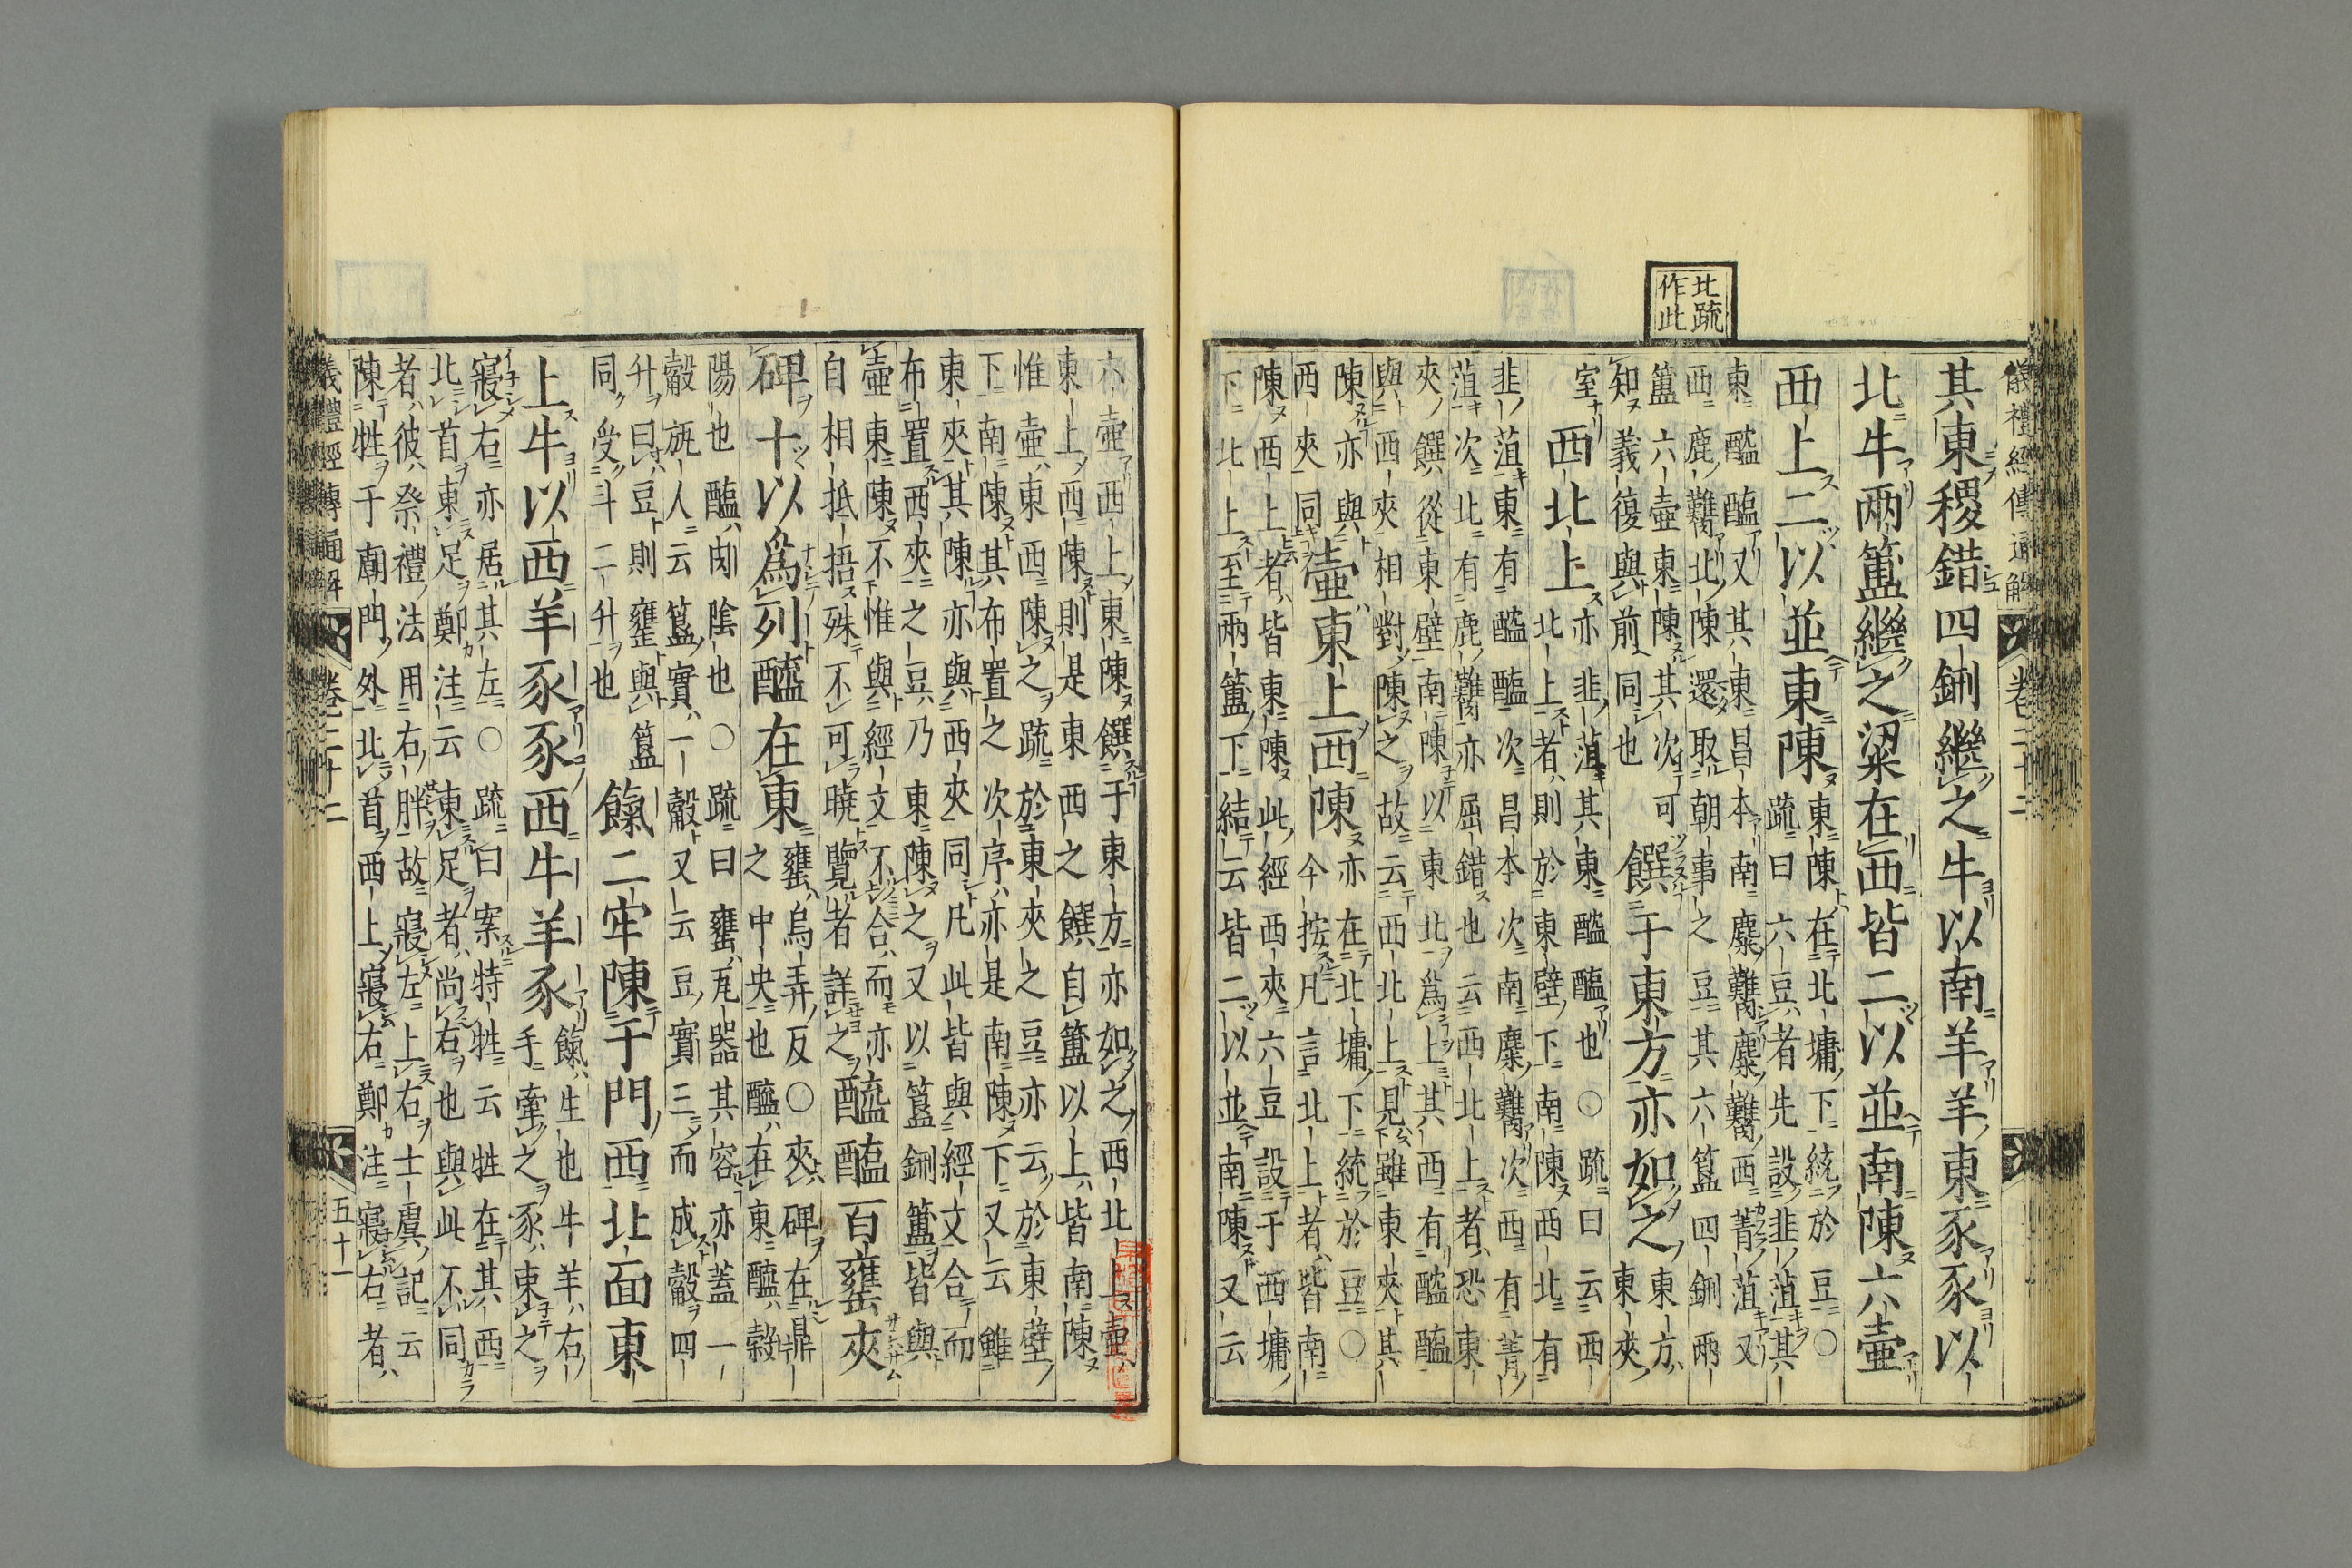 北疏
作此
儀禮經傳通解 卷二十二
其東稷錯四鉶繼之牛以南羊羊東豕豕以
北牛兩簠繼之粱在西皆二以並南陳六壺
西上二以並東陳
東陳在北墉下統於豆○
疏曰六豆者先設韭菹其
東醓醢又其東昌本南麋臡麋臡西菁菹又
西鹿臡北陳還取朝事之豆其六簋四鉶兩
簠六壺東陳其次可
知義復與前同也
饌于東方亦如之
東方
東夾
室
西北上
亦韭菹其東醓醢也○疏曰云西
北上者則於東壁下南陳西北有
韭菹東有醓醢次昌本次南麋臡次西有菁
菹次北有鹿臡亦屈錯也云西北上者恐東
夾饌從東壁南陳以東北爲上其西有醓醢
與西夾相對陳之故云西北上見雖東夾其
陳亦與
西夾同
壺東上西陳
亦在北墉下統於豆○
今按凡言北上者皆南
陳西上者皆東陳此經西夾六豆設于西墉
下北上至兩簠下結云皆二以並南陳又云
六壺西上東陳饌于東方亦如之西北上壺
東上西陳則是東西之饌自簠以上皆南陳
惟壺東西陳之疏於東夾之豆亦云於東壁
下南陳其布置之次序亦是南陳下又云雖
東夾其陳亦與西夾同凡此皆與經文合而
布置西夾之豆乃東陳之又以簋鉶簠皆與
壺東陳不惟與經文不合而亦
自相抵捂殊不可曉覽者詳之
醯醢百罋夾
碑十以爲列醯在東
罋烏弄反○夾碑在鼎
之中央也醯在東醯穀
陽也醢肉陰也○疏曰罋瓦器其容亦蓋一
觳旊人云簋實一觳又云豆實三而成觳四
升曰豆則罋與簋
同受斗二升也
餼二牢陳于門西北面東
上牛以西羊豕豕西牛羊豕
餼生也牛羊右
手牽之豕束之
寢右亦居其左○疏曰案特牲云牲在其西
北首東足鄭注云東足者尚右也與此不同
者彼祭禮法用右胖故寢左上右士虞記云
陳牲于廟門外北首西上寢右鄭注寢右者
儀禮經傳通解 卷二十二 五十一